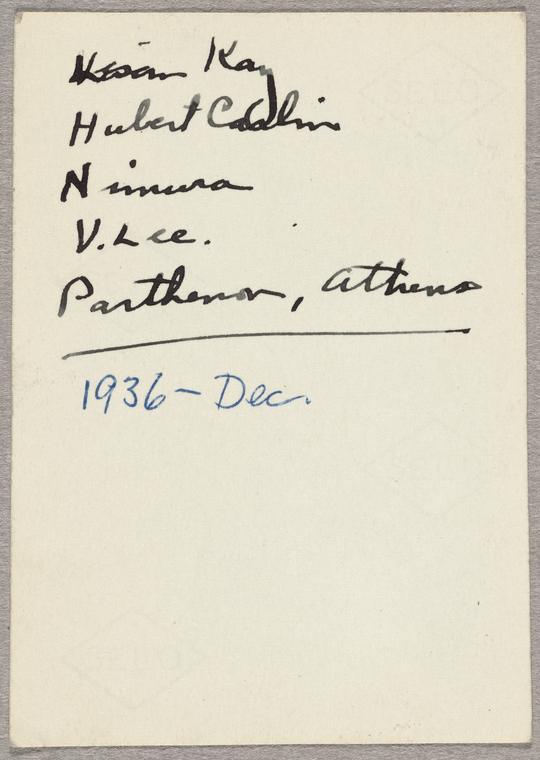 Lisan Kay
Hubert Carlin
Nimura
V. Lee.
Parthenon, Athens
1936 - Dec.